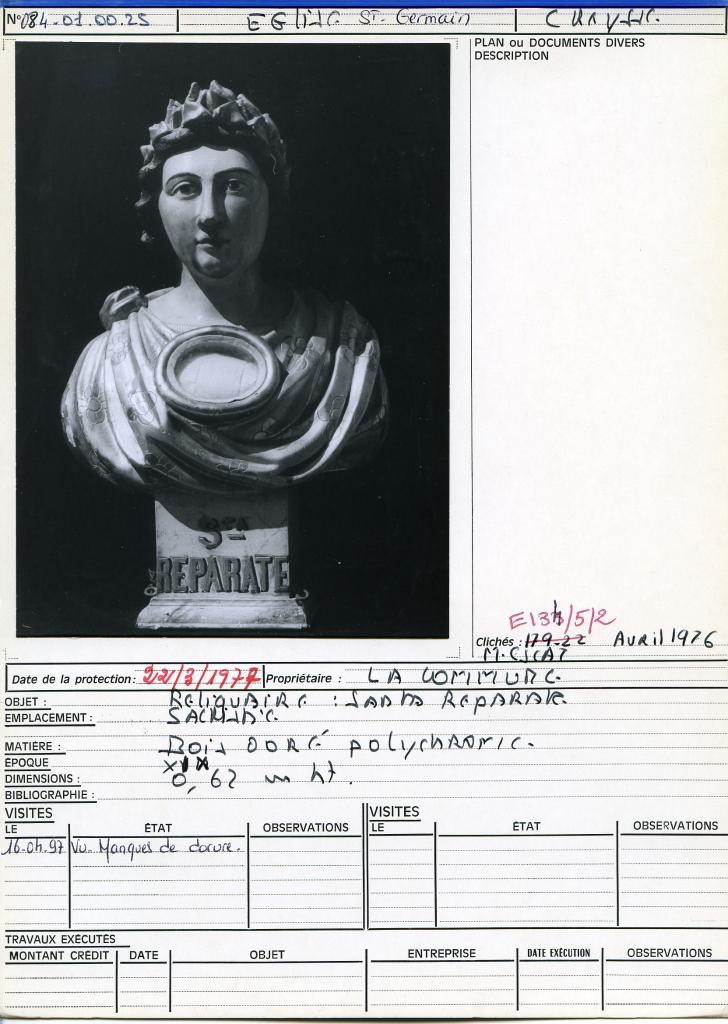 N° 084-01.00.25 EGLISE St-Germain
PLAN ou DOCUMENTS DIVERS
DESCRIPTION
STA
REPARATE
E134/5/2
Clichés : 179-22 Avril 1976
Date de la protection: 22/3/1977 Propriétaire : LA COMMUNE
OBJET : RELIQUAIRE : SANTA REPARATE
EMPLACEMENT : SACRISTIE
MATIÈRE : BOIS DORÉ POLYCHROMIE.
ÉPOQUE
DIMENSIONS : 0,62 m ht.
BIBLIOGRAPHIE :
VISITES VISITES
LE ÉTAT OBSERVATIONS LE ÉTAT OBSERVATIONS
16.04.97 Vu. Manques de dorure.
TRAVAUX EXÉCUTÉS
MONTANT CRÉDIT DATE OBJET ENTREPRISE DATE EXÉCUTION OBSERVATIONS